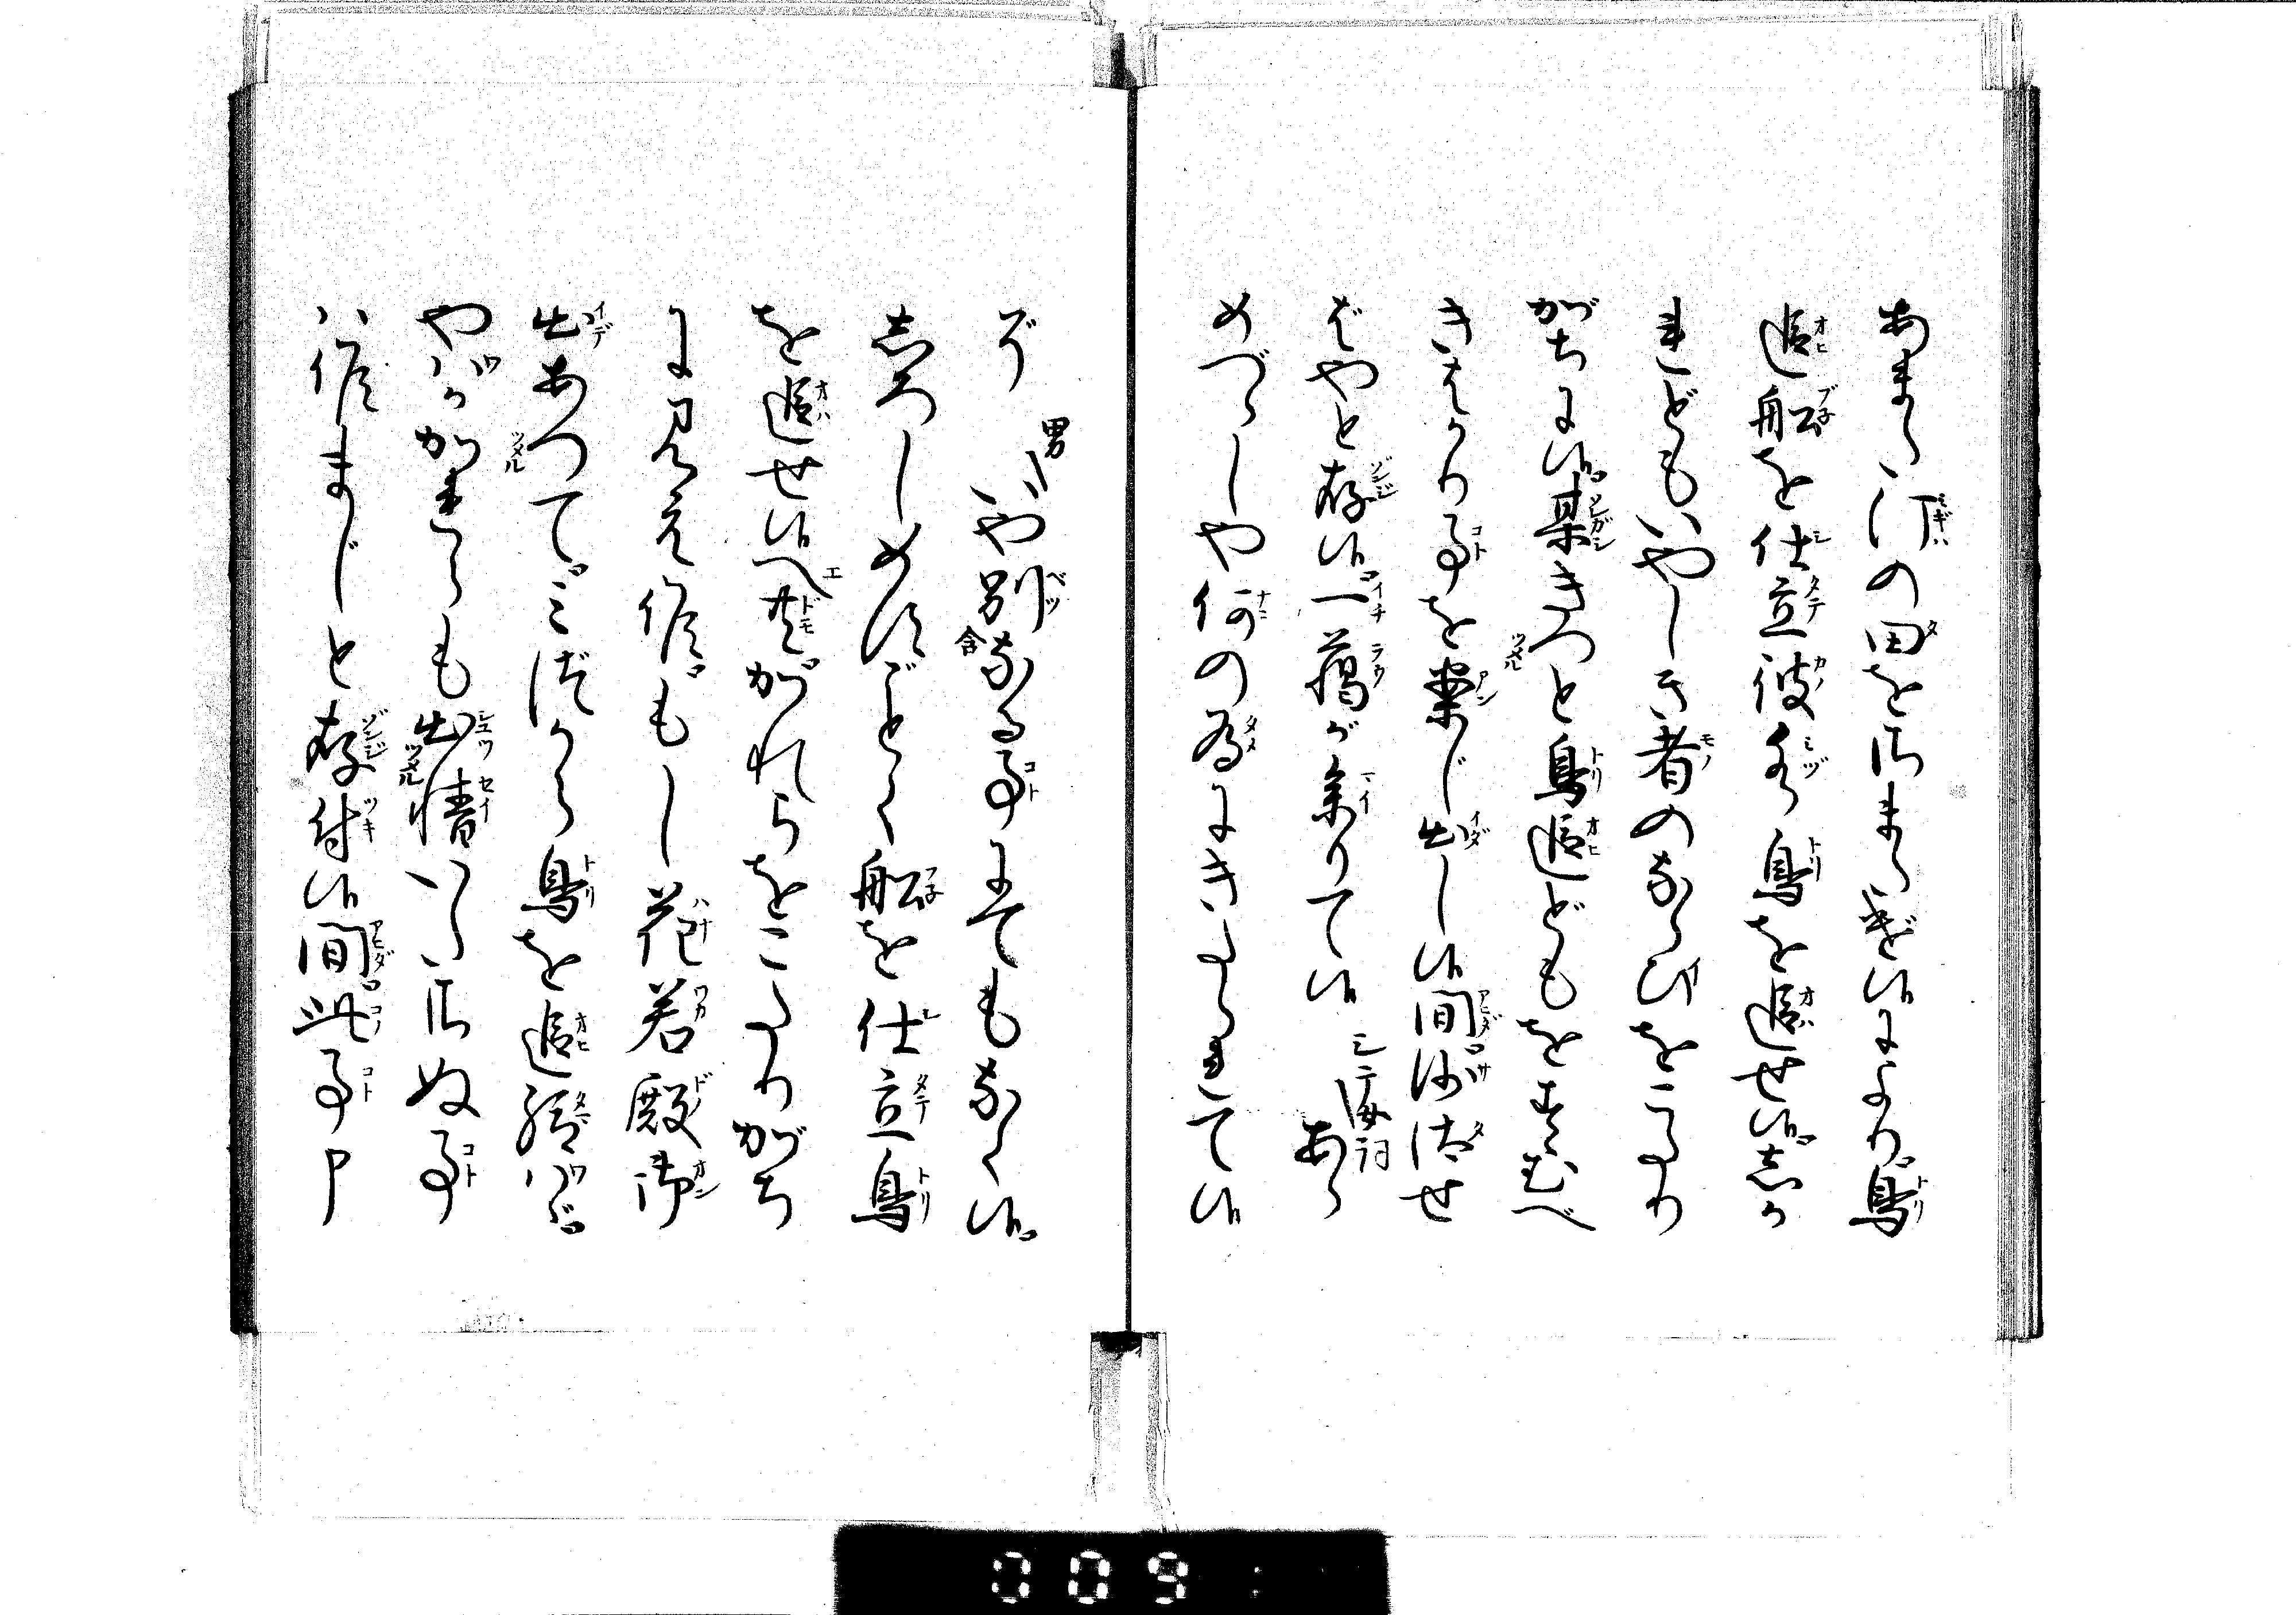 あまた汀の田をふまへ候により鳥
追船を仕立彼水鳥を追せ候しか
れどもいやしき者のならひをこたり
がちに候某きつと鳥追どもをすゝむべ
きはかり事を案じ出し候間沙汰せ
ばやと存候一﨟が参りて候
あら
めづらしや何の為にきたられて候
ぞ
男
いや別なる事にてもなく候
しろしめすごとく船を仕立鳥
を追せ候へ共かれらをこたりがち
に見え候もし花若殿御
出あつてみづから鳥を追給はゞ
やはかかれらも出情いたさぬ事
は候まじと存付候間此事申
009